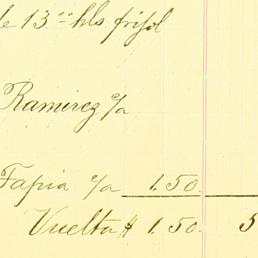 de 13.⁰⁰ hls frijol
Ramirez c/a
Tapia c/a 1.50.
Vuelta $ 1.50. 5